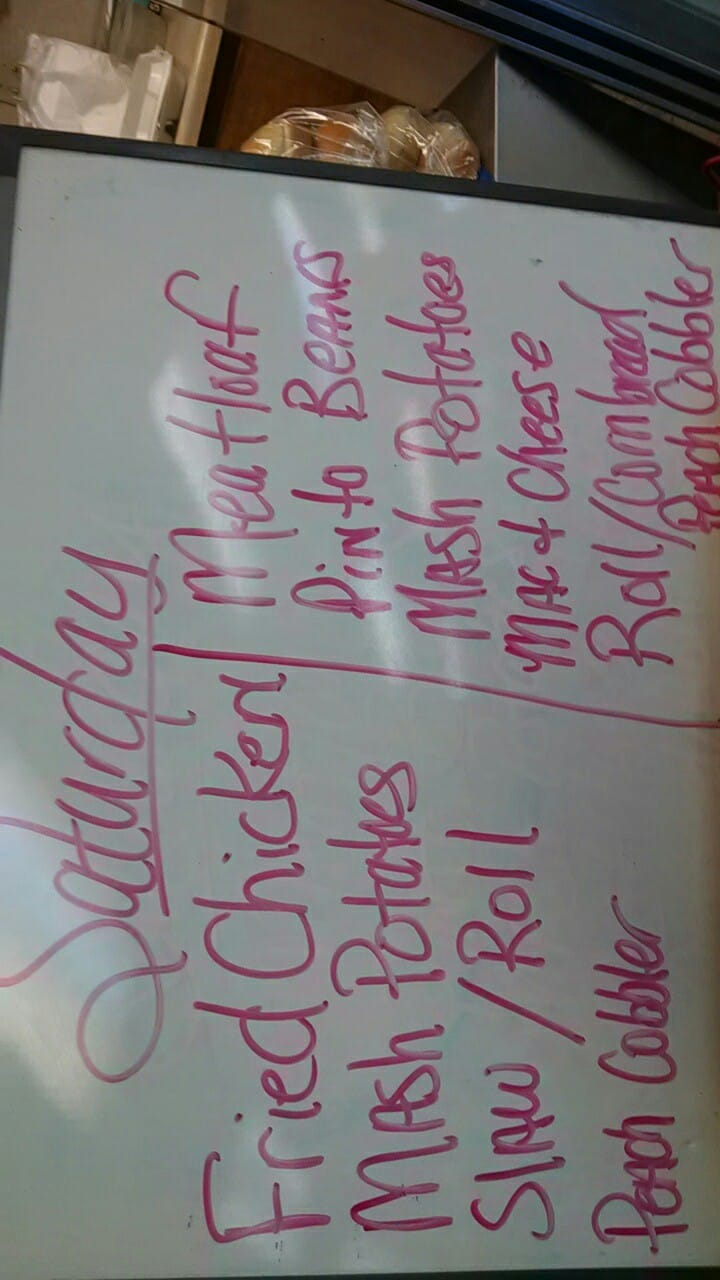 Saturday
Fried Chicken
Mash Potatoes
Slaw / Roll
Peach Cobbler
Meatloaf
Pinto Beans
Mash Potatoes
Mac & Cheese
Roll/Cornbread
Peach Cobbler